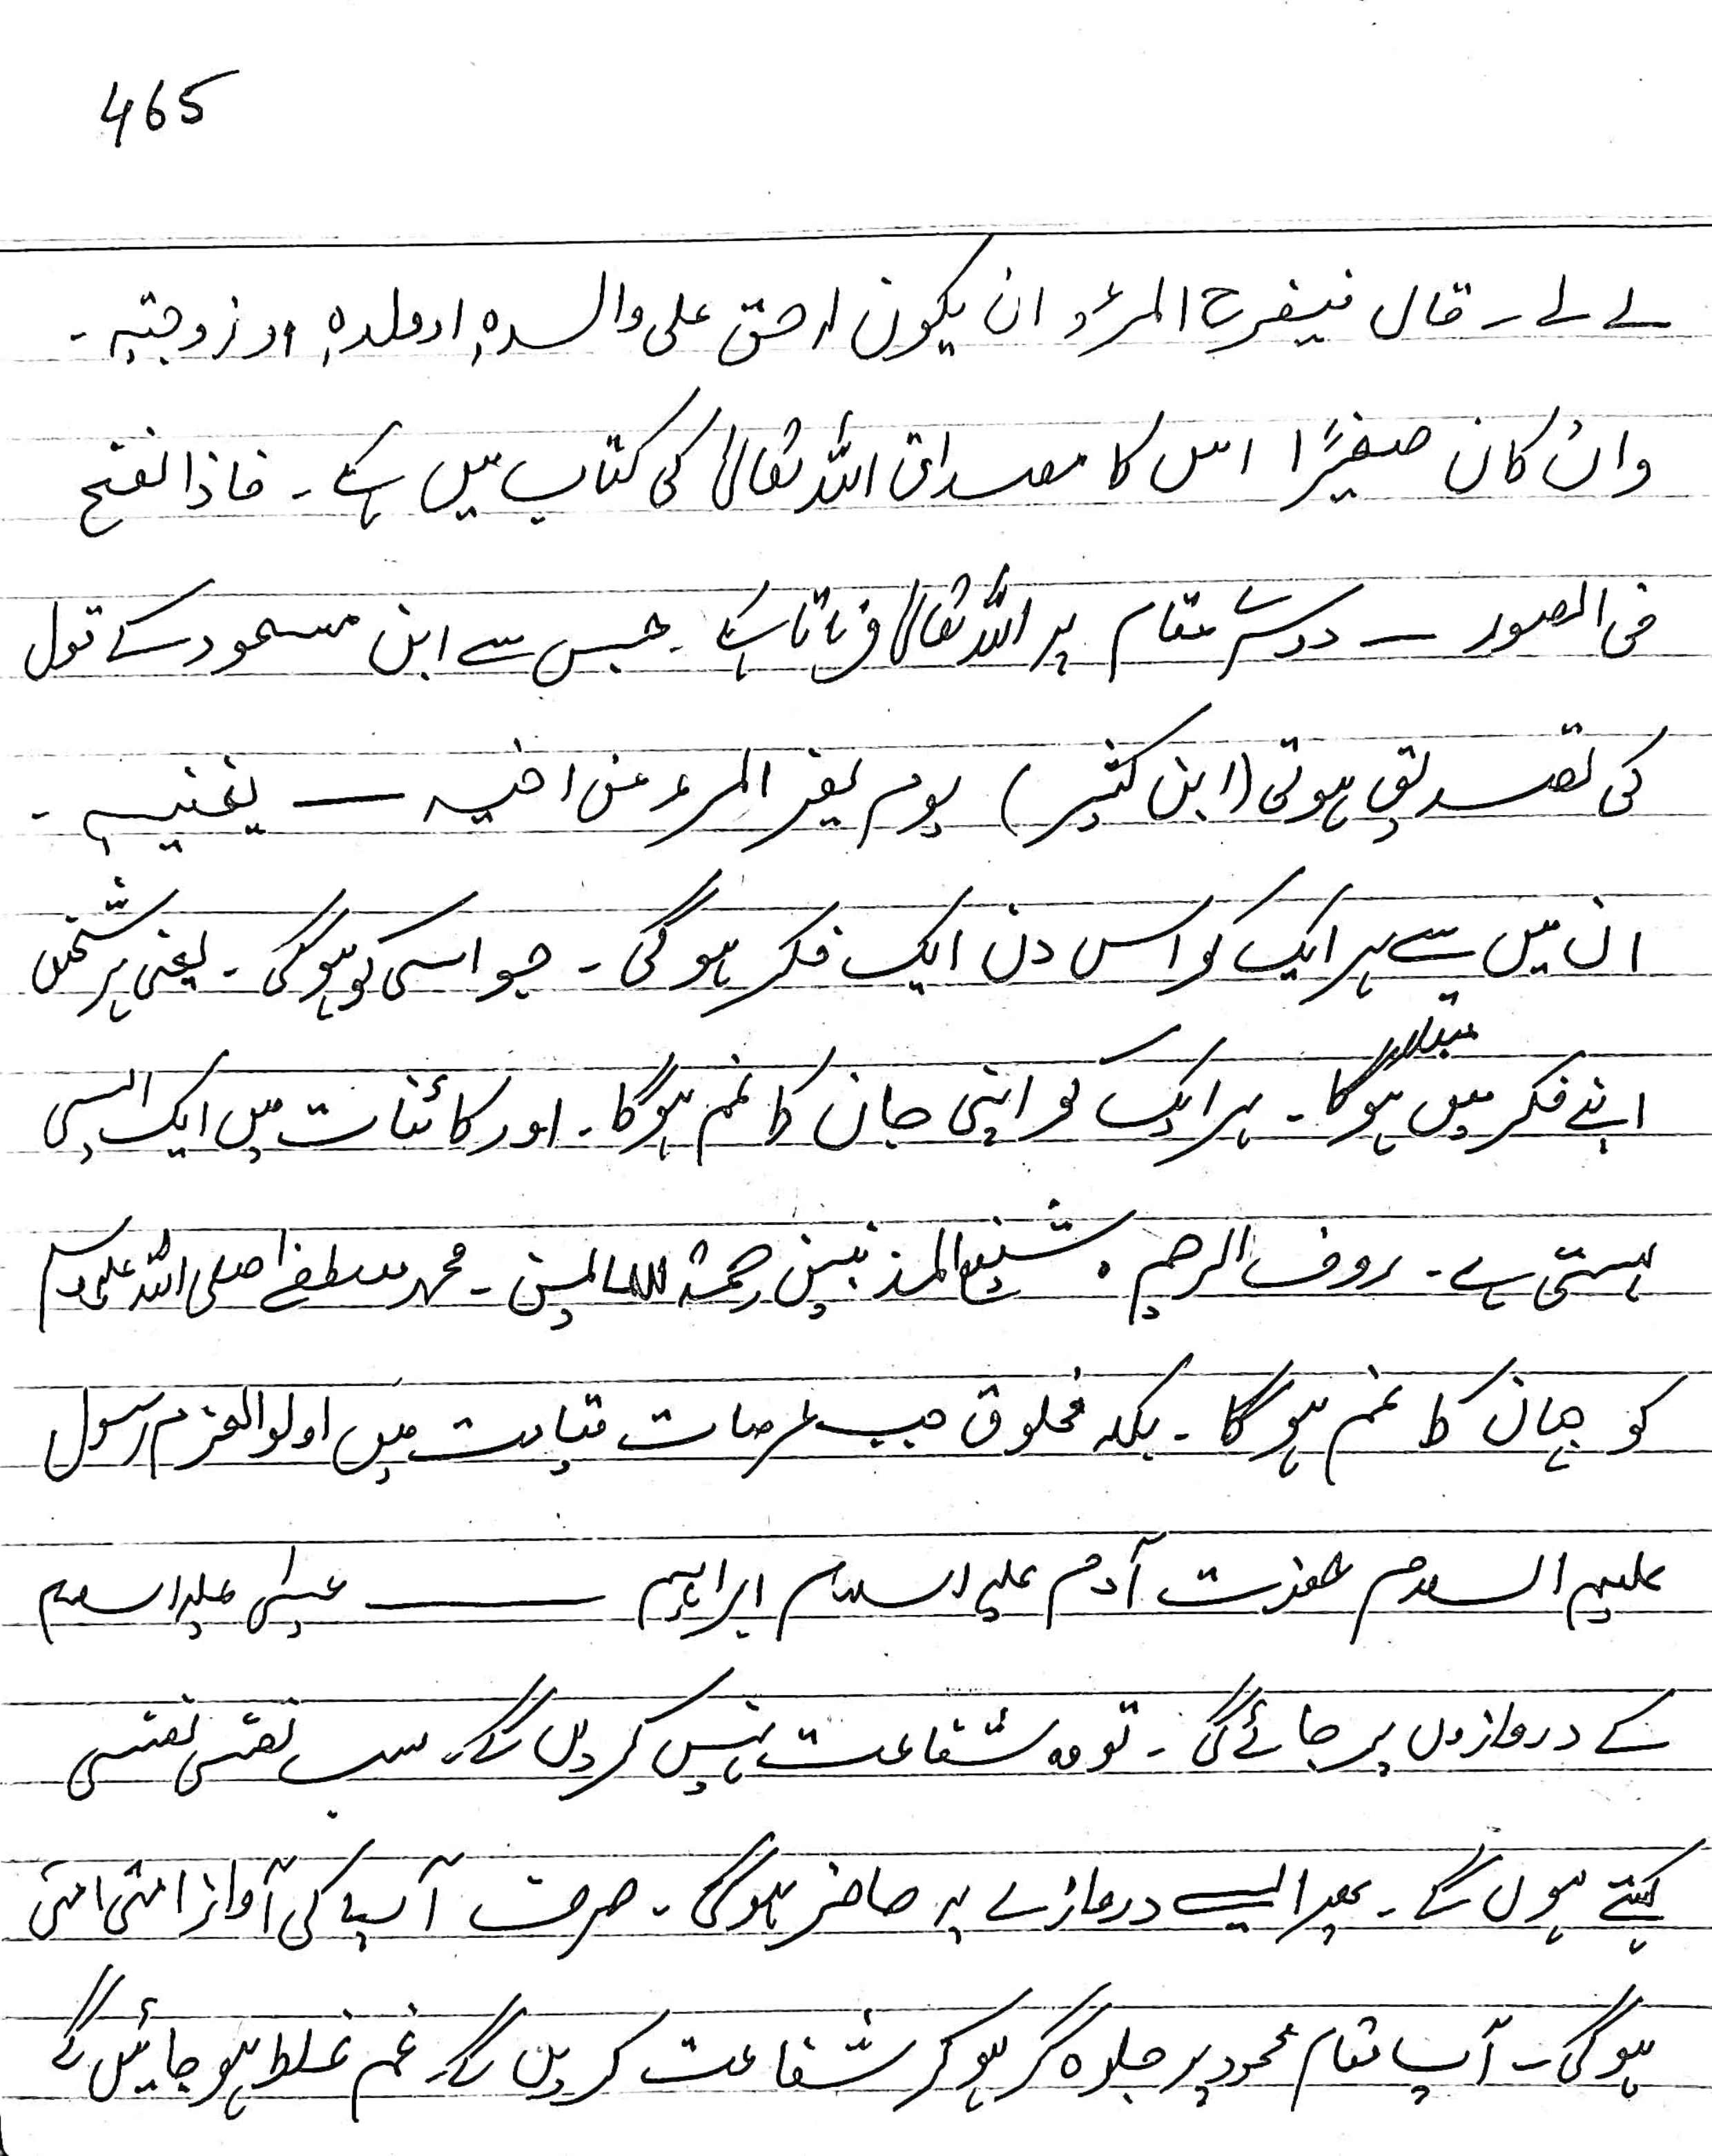 465
لے لے ۔ قال فیفرح المرؤ ان یکون لہ حق علی والدہٖ او ولدہٖ او زوجتہٖ ۔
وان کان صغیرًا اس کا مصداق اللہ تعالیٰ کی کتاب میں ہے ۔ فاذا نفخ
فی الصور — دوسرے مقام پر اللہ تعالیٰ فرماتا ہے ۔ جس سے ابن مسعود کے قول
کی تصدیق ہوتی (ابن کثیر) یوم یفر المرء من اخیہ — یغنیہ ۔
ان میں سے ہر ایک کو اس دن ایک فکر ہوگی ۔ جو اسی کو ہوگی ۔ یعنی ہر شخص
اپنے فکر میں مبتلا ہوگا ۔ ہر ایک کو اپنی جان کا غم ہوگا ۔ اور کائنات میں ایک ایسی
ہستی ہے ۔ روف الرحیم ۔ شفیع المذنبین رحمۃ للعالمین ۔ محمد مصطفےٰ صلی اللہ علیہ وسلم
کو جہان کا غم ہوگا ۔ بلکہ مخلوق جب عرصات قیامت میں اولوالعزم رسول
علیہم السلام حضرت آدم علیہ السلام ابراہیم — عیسیٰ علیہ السلام
کے دروازوں پر جائے گی ۔ تو وہ شفاعت نہیں کریں گے ۔ سب نفسی نفسی
کہتے ہوں گے ۔ پھر ایسے دروازے پہ حاضر ہوگی ۔ صرف آپ کی آواز امتی امتی
ہوگی ۔ آپ مقام محمود پر جلوہ گر ہو کر شفاعت کریں گے ۔ غم غلط ہو جائیں گے